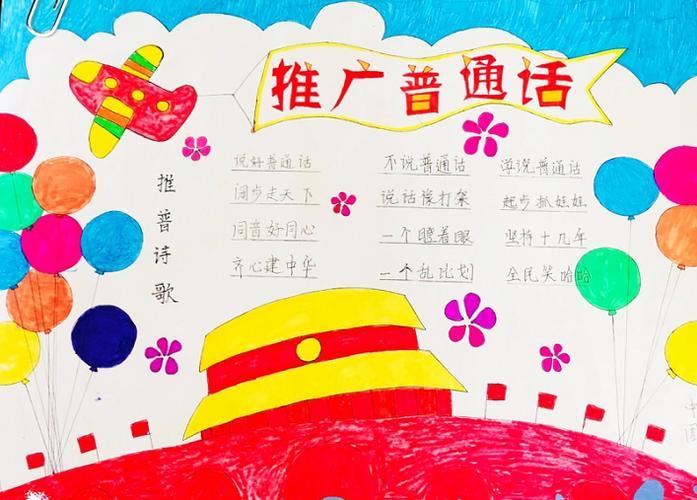 推广普通话
推普诗歌
说好普通话
阔步走天下
同音好同心
齐心建中华
不说普通话
说话像打架
一个瞪着眼
一个乱比划
学说普通话
起步抓娃娃
坚持十几年
全民笑哈哈
中国